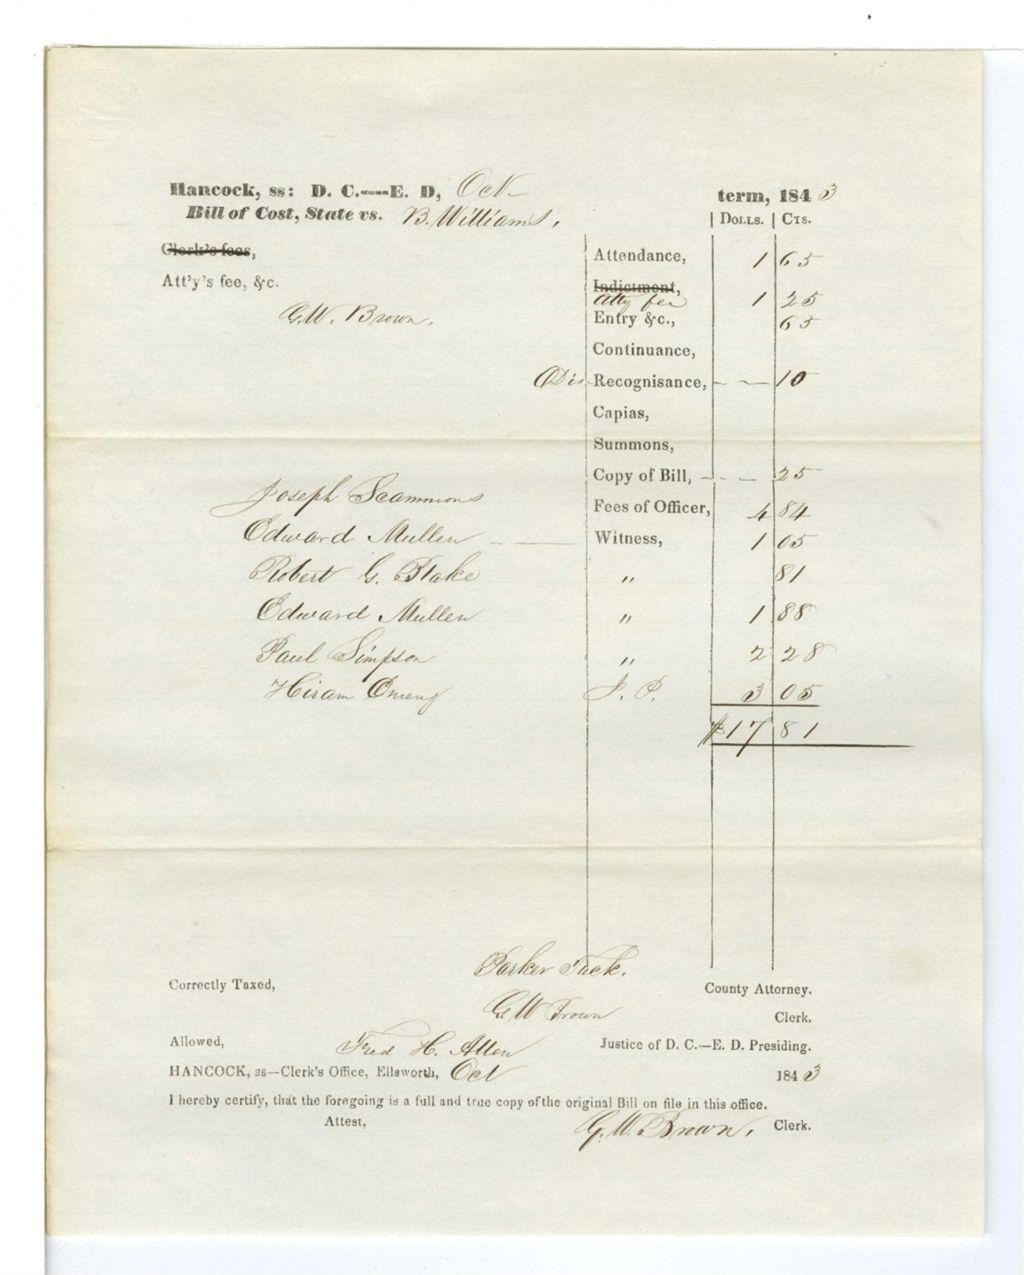 Hancock, ss: D. C.----E. D, Oct term, 1843
Bill of Cost, State vs. B. Williams, Dolls. Cts.
Clerk's fees, Attendance, 1 65
Att'y's fee, &c. Indictment,
Atty fee 1 25
G.W. Brown. Entry &c., 65
Continuance,
Dis Recognisance, — — 10
Capias,
Summons,
Copy of Bill, - - - 25
Joseph Scammons Fees of Officer, 4 84
Edward Mullen — Witness, 1 05
Robert G. Blake " 81
Edward Mullen " 1 88
Paul Simpson " 2 28
Hiram J. P. 3 05
$17 81
Parker Tuck.
Correctly Taxed, County Attorney.
G W Brown Clerk.
Allowed, Fred H. Allen Justice of D. C.—E. D. Presiding.
HANCOCK, ss—Clerk's Office, Ellsworth, Oct 1843
I hereby certify, that the foregoing is a full and true copy of the original Bill on file in this office.
Attest, G. W. Brown, Clerk.